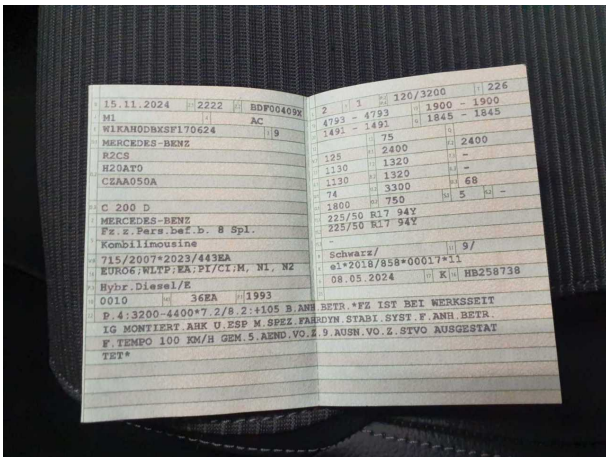 15.11.2024 2222 BDF00409X
M1 AC
W1KAH0DBXSF170624 9
MERCEDES-BENZ
R2CS
H20AT0
CZAA050A
C 200 D
MERCEDES-BENZ
Fz.z.Pers.bef.b. 8 Spl.
Kombilimousine
715/2007*2023/443EA
EURO6;WLTP;EA;PI/CI;M, N1, N2
Hybr.Diesel/E
0010 36EA 1993
2 1 120/3200 226
4793 - 4793 1900 - 1900
1491 - 1491 1845 - 1845
75
125 2400 2400
1130 1320 -
1130 1320 -
74 3300 68
1800 750 5 -
225/50 R17 94Y
225/50 R17 94Y
-
Schwarz/ 9/
e1*2018/858*00017*11
08.05.2024 K HB258738
P.4:3200-4400*7.2/8.2:+105 B.ANH.BETR.*FZ IST BEI WERKSSEIT
IG MONTIERT.AHK U.ESP M.SPEZ.FAHRDYN.STABI.SYST.F.ANH.BETR.
F.TEMPO 100 KM/H GEM.5.AEND.VO.Z.9.AUSN.VO.Z.STVO AUSGESTAT
TET*